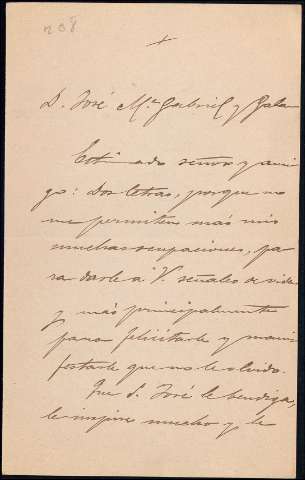 208
+
D. José Mª Gabriel y Galan
Estimado señor y ami
go: Dos letras, porque no
me permiten más mis
muchas ocupaciones, pa
ra darle á V. señales de vida
y más principalmente
para felicitarle y mani
festarle que no le olvido.
Que S. José le bendiga,
le inspire mucho y le